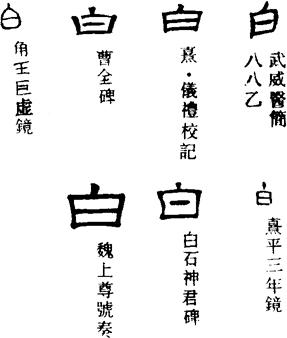 白
武威醫簡
八八乙
白
熹·儀禮校記
白
曹全碑
白
角王巨虛鏡
白
熹平三年鏡
白
白石神君碑
白
魏上尊號奏